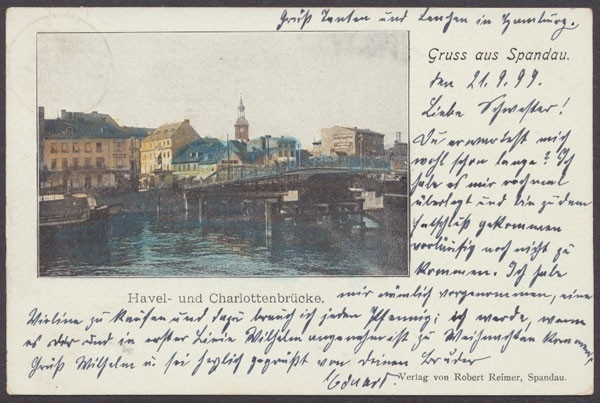 Gruß Tanten und Lenchen in Hamburg.
Gruss aus Spandau.
den 21.9.99.
Liebe Schwester!
Du erwartest mich
wohl schon lange? Ich
habe es mir nochmal
überlegt und bin zu dem
Entschluß gekommen
vorläufig noch nicht zu
kommen. Ich habe
Havel- und Charlottenbrücke.
mir nämlich vorgenommen, eine
Violine zu kaufen und dazu brauch ich jeden Pfennig; ich werde, wenn
es Dir und in erster Linie Wilhelm angenehm ist zu Weihnachten kommen.
Gruß Wilhelm u. sei herzlich gegrüßt von deinem Bruder
Eduard.
Verlag von Robert Reimer, Spandau.